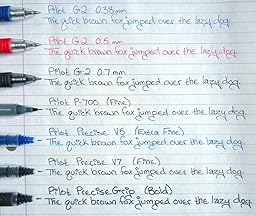 Pilot G-2 0.38mm
The quick brown fox jumped over the lazy dog.
Pilot G-2 0.5mm
The quick brown fox jumped over the lazy dog.
Pilot G-2 0.7mm
The quick brown fox jumped over the lazy dog.
Pilot P-700 (Fine)
The quick brown fox jumped over the lazy dog.
Pilot Precise V5 (Extra Fine)
The quick brown fox jumped over the lazy dog.
Pilot Precise V7 (Fine)
The quick brown fox jumped over the lazy dog.
Pilot Precise Grip (Bold)
The quick brown fox jumped over the lazy dog.